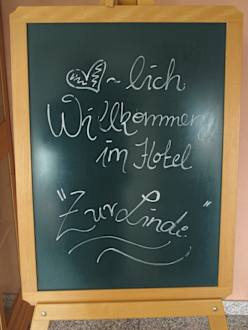 ♡~lich
Willkommen
im Hotel
"Zur Linde"